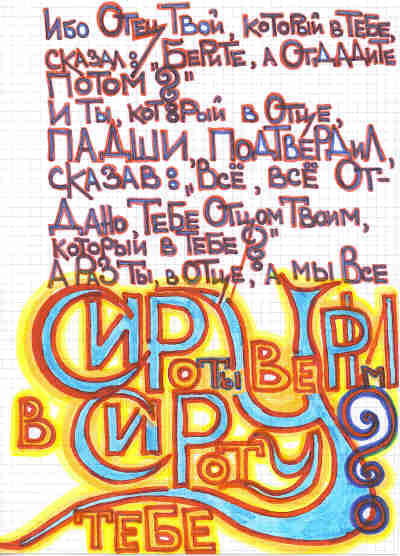 Ибо Отец Твой, который в Тебе,
сказал: „Берите, а Отдадите
потом?"
И Ты, который в Отце,
падши, подтвердил,
сказав: „Всё, всё От-
дано, Тебе Отцом Твоим,
который в Тебе?"
А раз Ты, в Отце, а мы все
Сироты верим
в Сироту
Тебе